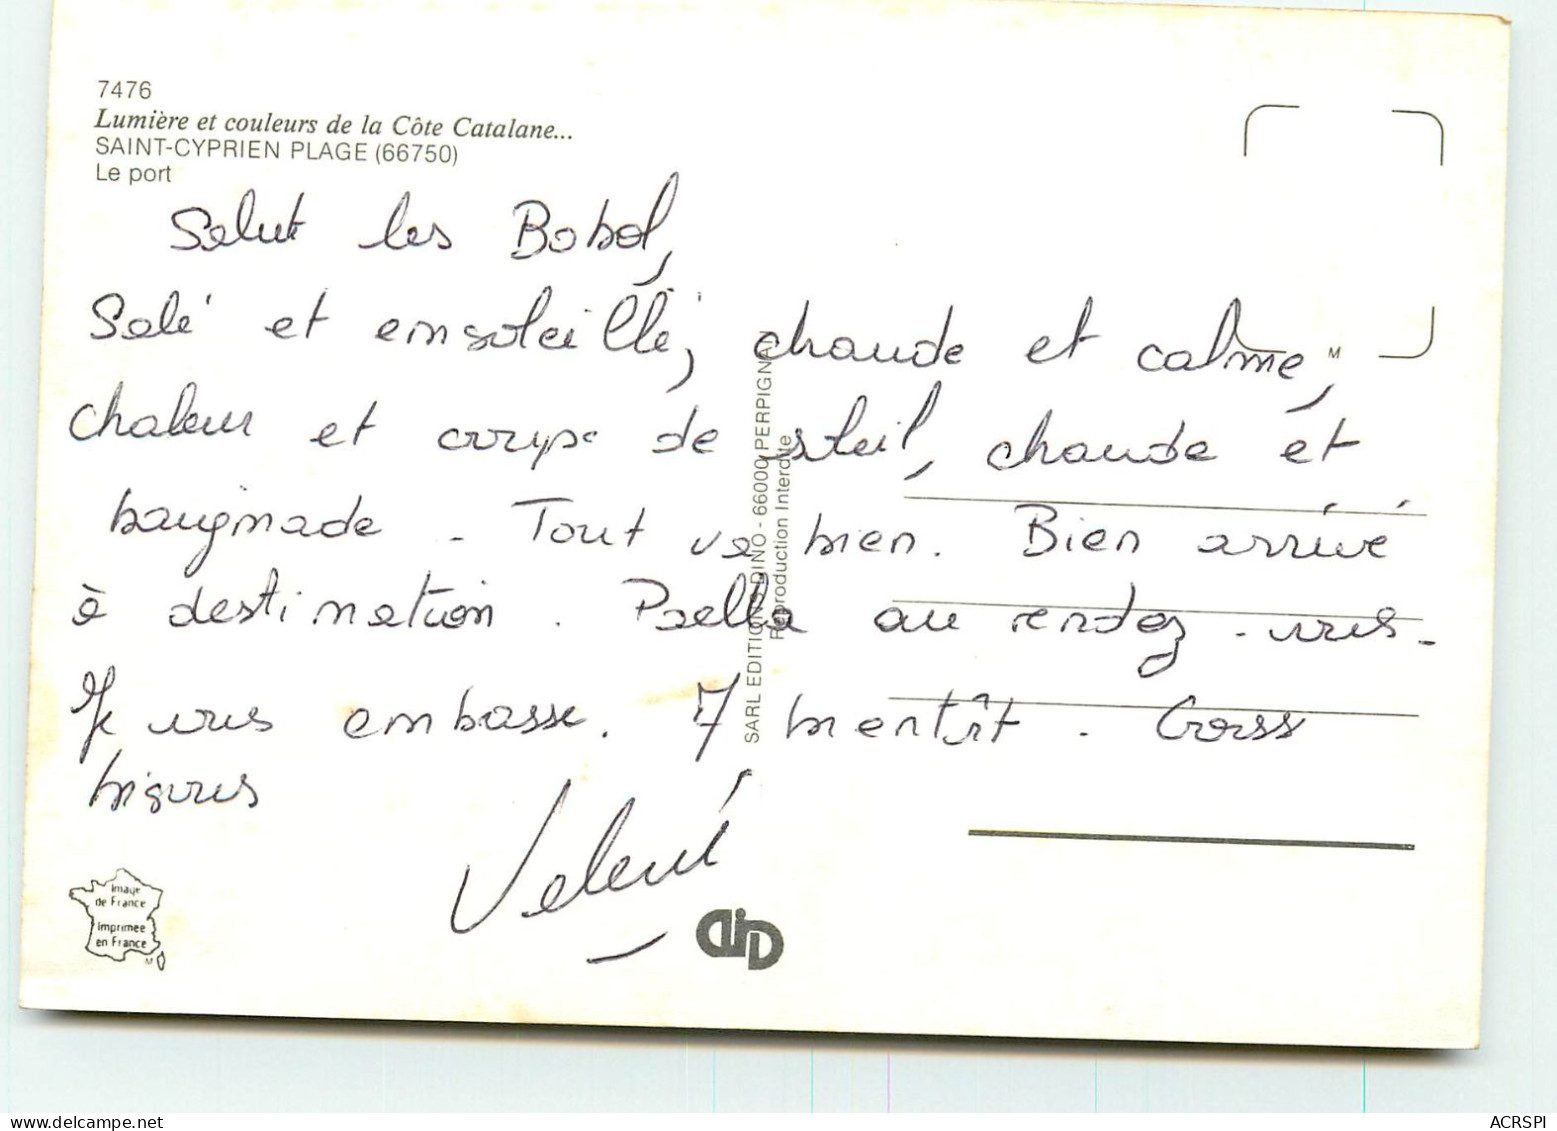 7476
Lumière et couleurs de la Côte Catalane...
SAINT-CYPRIEN PLAGE (66750)
Le port
Salut les Bobol,
Salé et ensoleillé, chaude et calme,
chaleur et coups de soleil, chaude et
baignade. Tout va bien. Bien arrivé
à destination. Paella au rendez-vous.
Je vous embasse. A bientôt. Gross
bisous
SARL EDITIONS DINO - 66000 PERPIGNAN
Reproduction Interdite
M
Image
de France
Imprimee
en France
M
ACRSPI